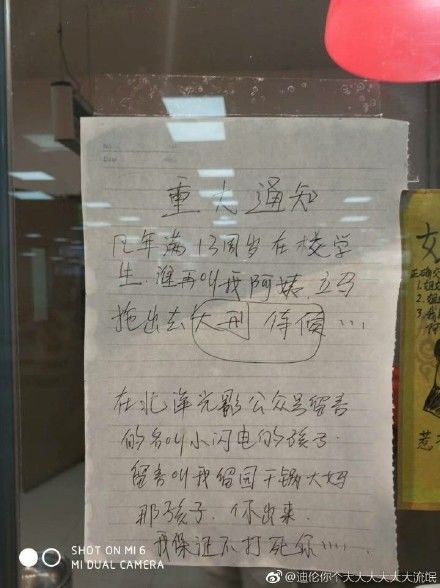 重大通知
凡年满13周岁在校学
生.谁再叫我阿姨立马
拖出去大刑 侍候…
在北洋光影公众号留言
的名叫小闪电的孩子.
留言叫我留园干锅大妈
那孩子.你出来.
我保证不打死你……
女
正确
惹
SHOT ON MI 6
MI DUAL CAMERA
@迪伦你个大大大大大大流氓